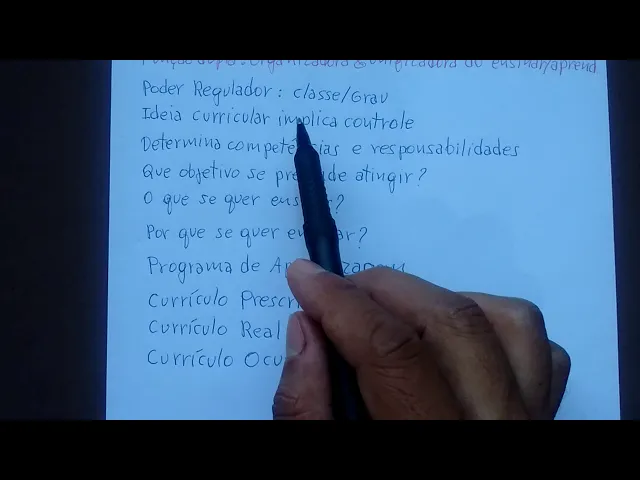 organizadora & unificadora do ensinar/aprend
Poder Regulador: classe/Grau
Ideia curricular implica controle
Determina compet ias e responsabilidades
Que objetivo se pre de atingir?
O que se quer ens r?
Por que se quer en ar?
Programa de Ap izagem
Currículo Prescri
Currículo Real
Currículo Ocu